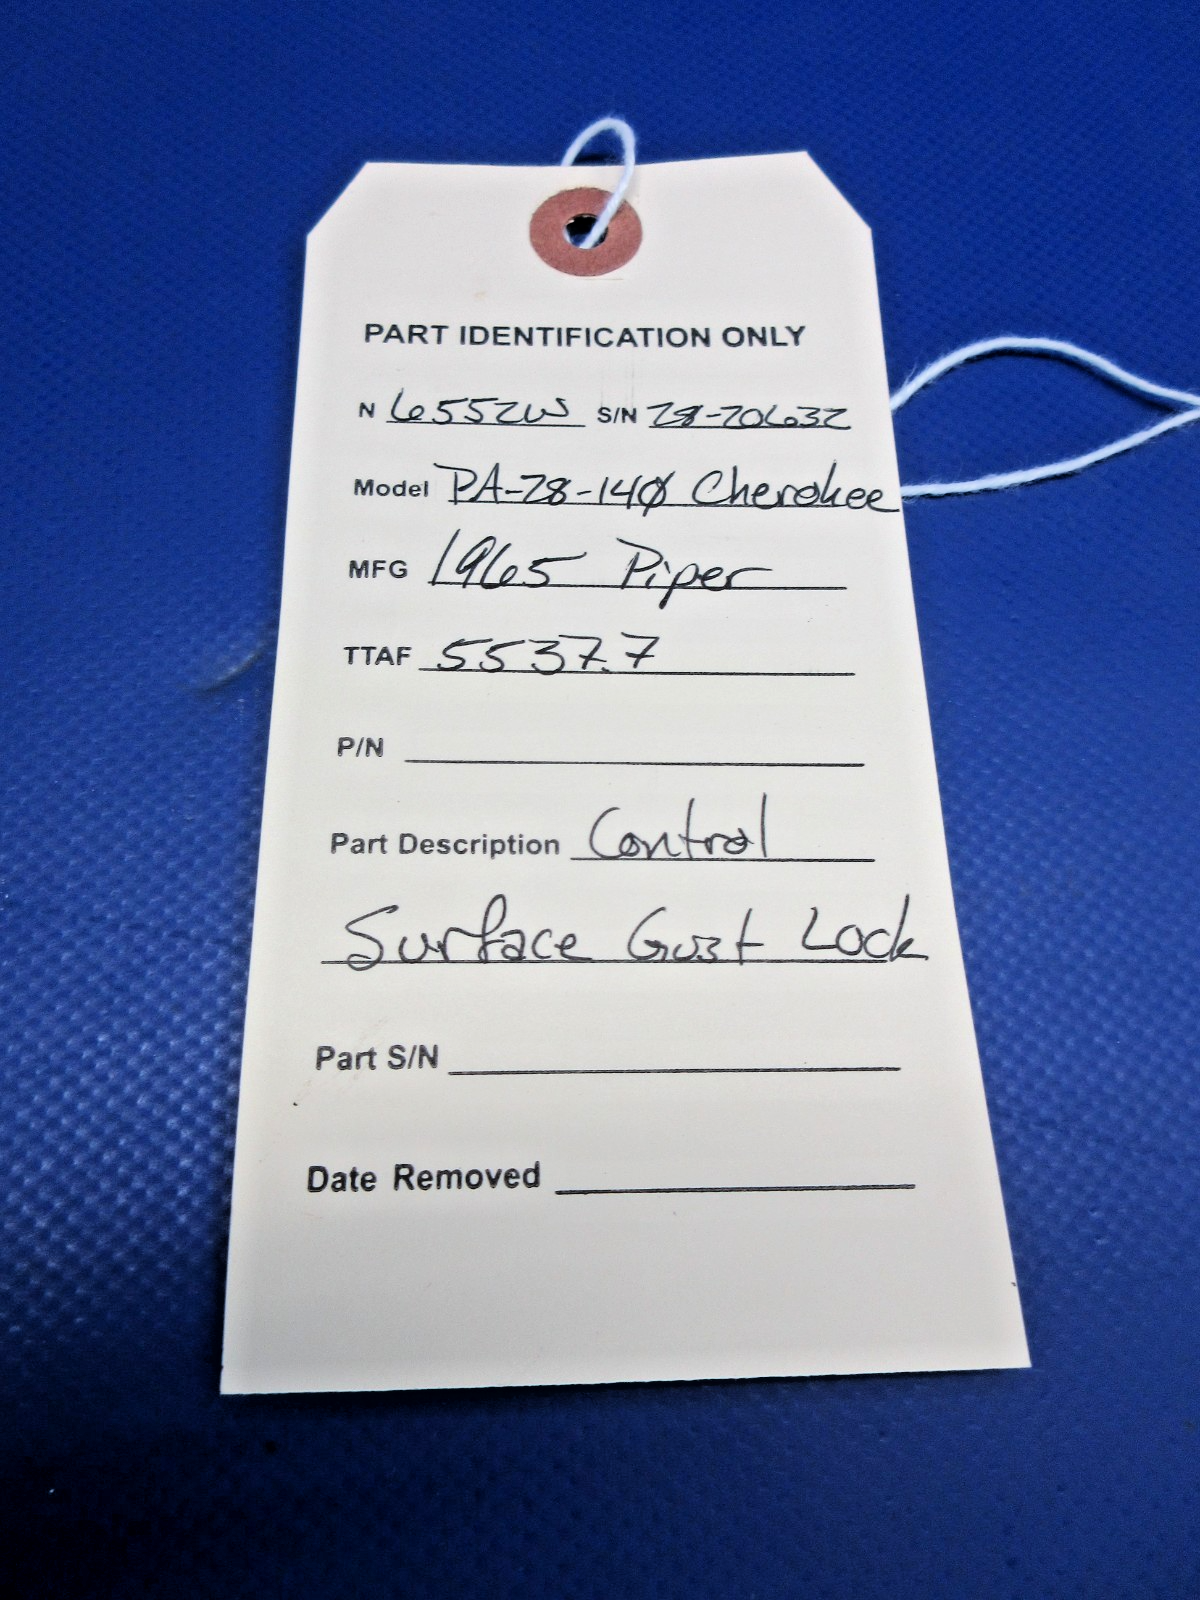 PART IDENTIFICATION ONLY
N 6552W S/N 28-20632
Model PA-28-140 Cherokee
MFG 1965 Piper
TTAF 5537.7
P/N
Part Description Control
Surface Gust Lock
Part S/N
Date Removed